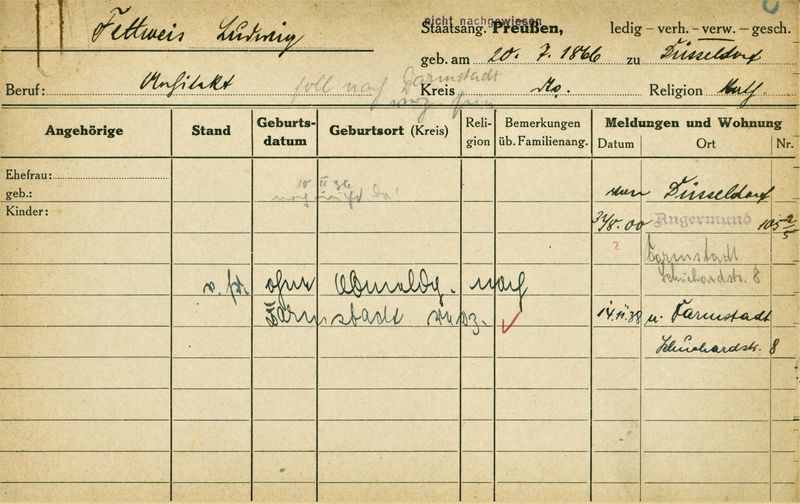 Fettweis Ludwig
nicht nachgewiesen
Staatsang. Preußen, ledig – verh. – verw. – gesch.
geb. am 20. 7. 1866 zu Düsseldorf
Beruf: Architekt soll nach Darmstadt Kreis do. Religion kath.
Angehörige Stand Geburts-datum Geburtsort (Kreis) Reli-gion Bemerkungen üb. Familienang. Meldungen und Wohnung
Datum Ort Nr.
Ehefrau:
geb.:
Kinder:
10 II 36
noch nicht da!
von Düsseldorf
31/8.00 Angermund 105 2/5
?
Darmstadt
Schuchardstr. 8
v. ohne Abmeldg. nach
Darmstadt verz. ✓
14.11.38 n. Darmstadt
Schuchardstr. 8